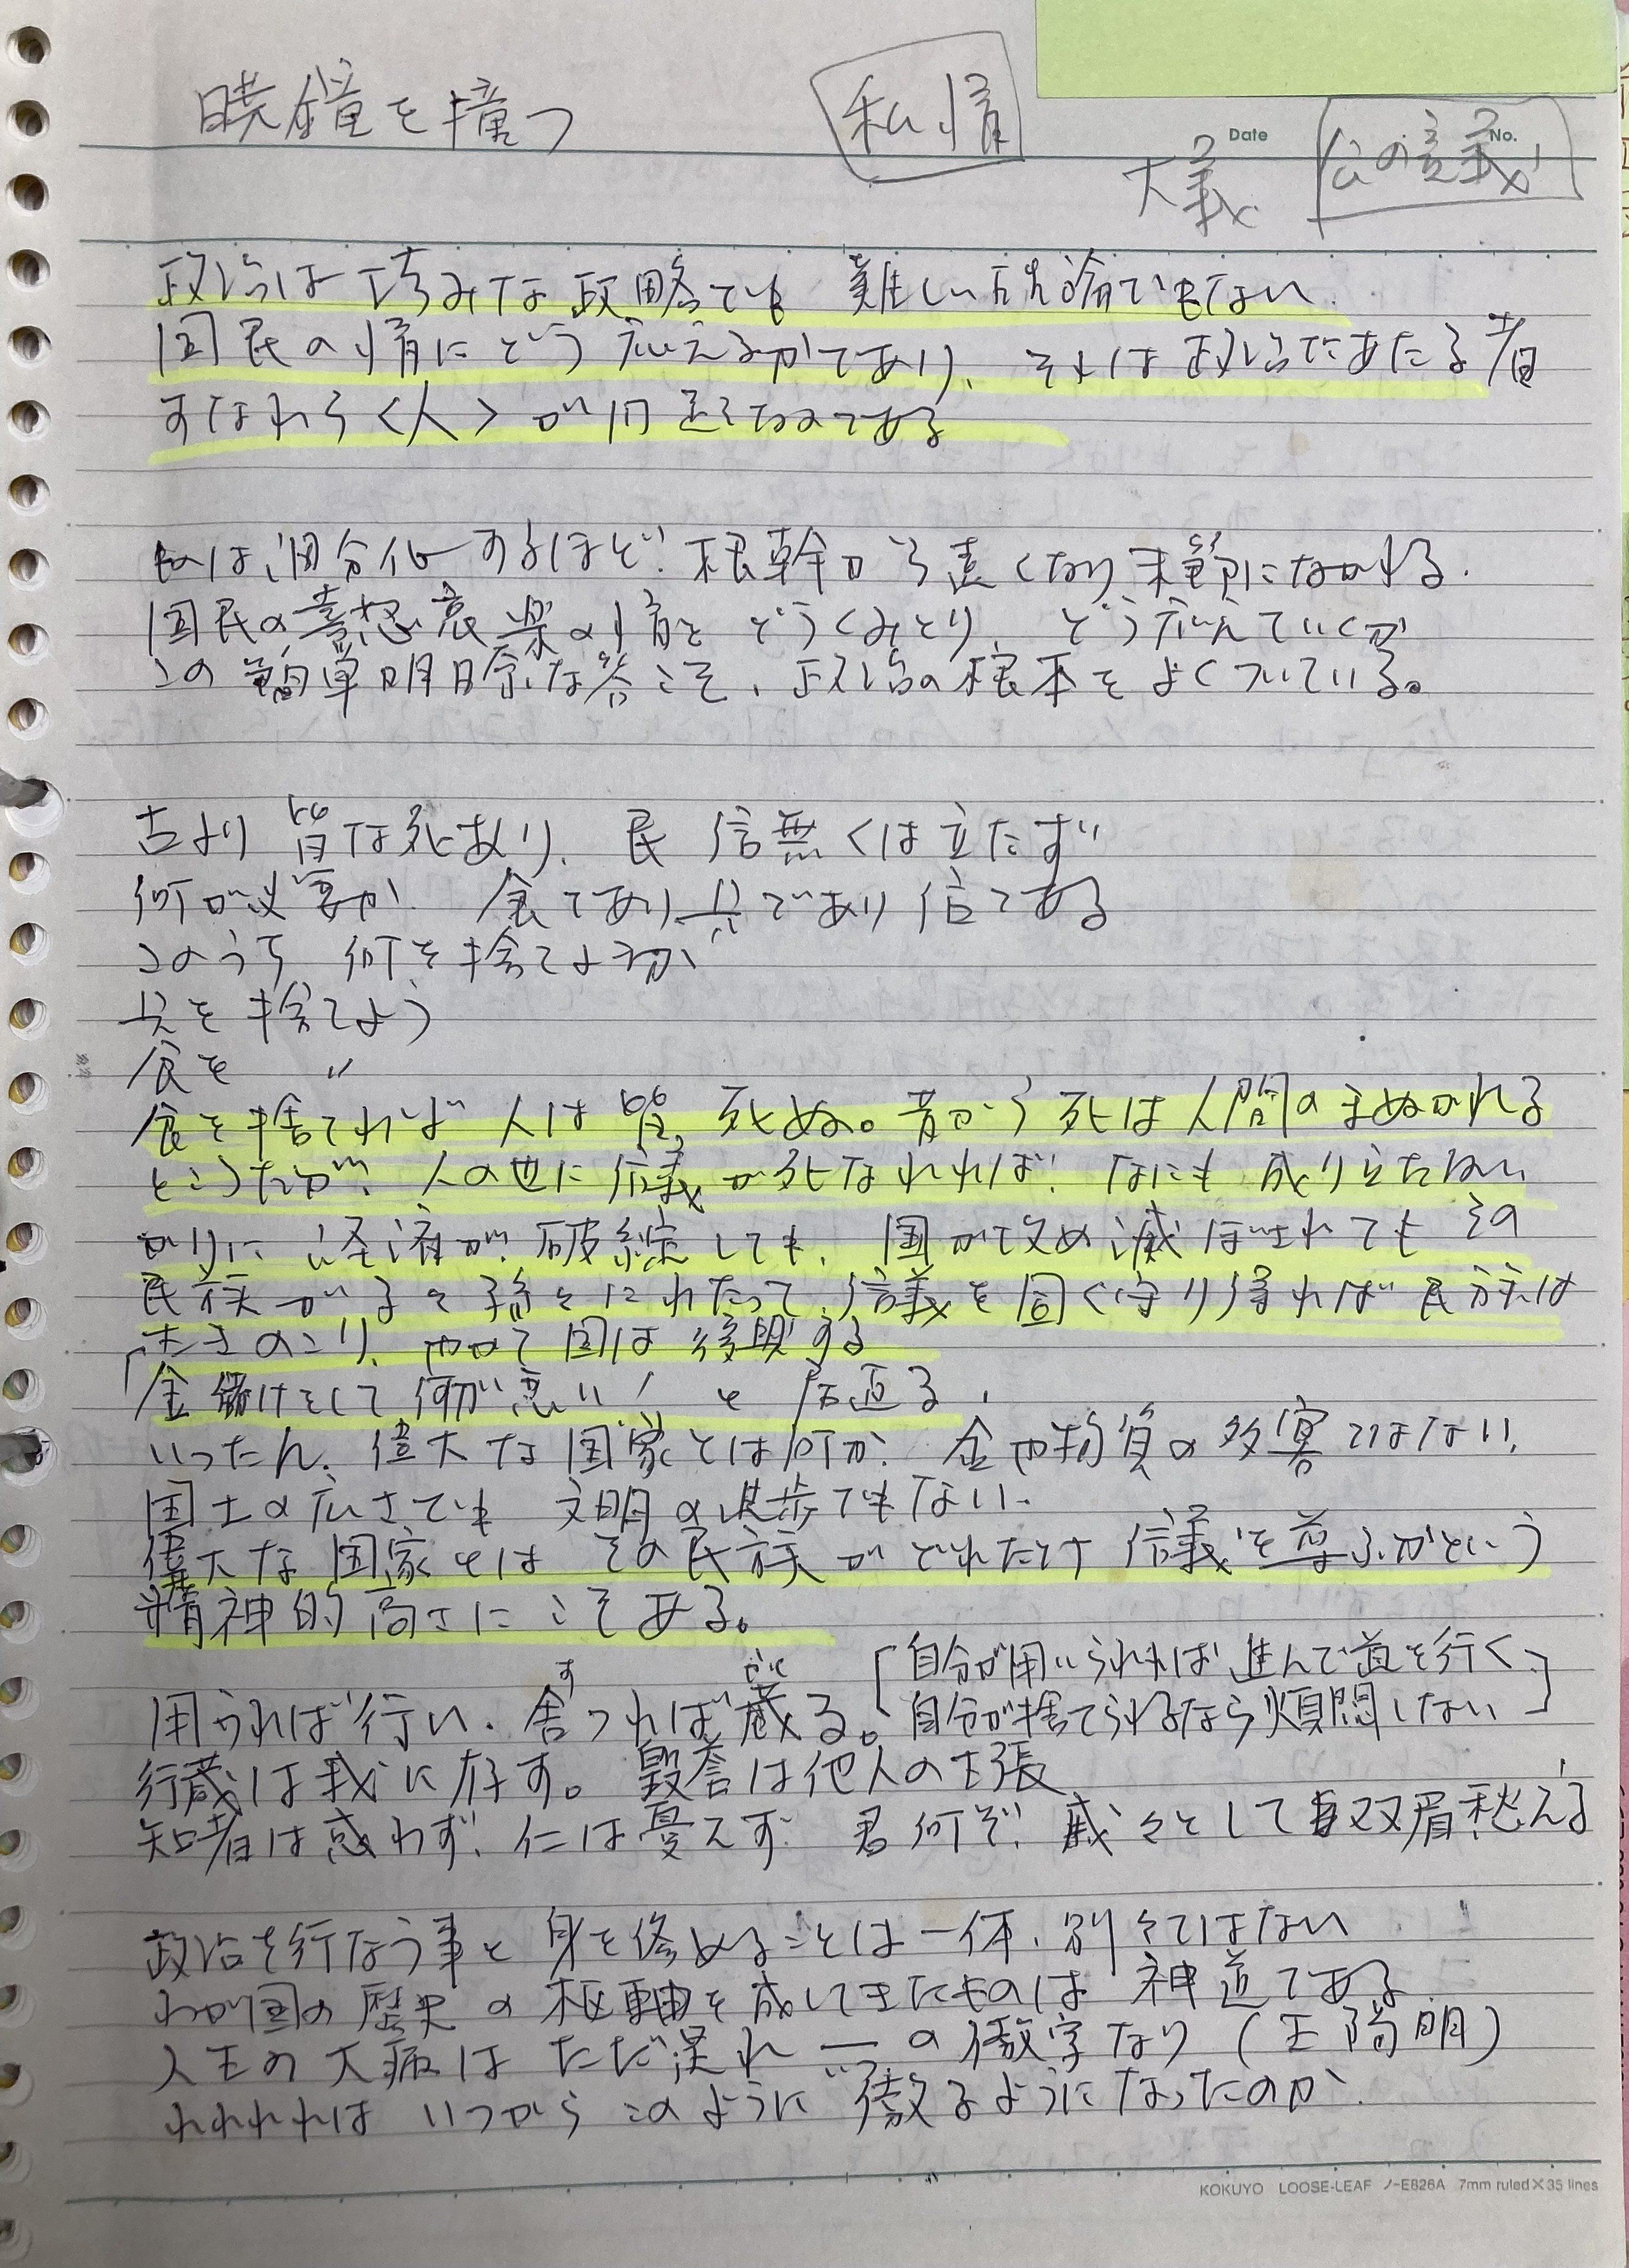 暁鐘を撞つ
私情
Date
No.
大義
公の義
政治は巧みな政略でも 難しい試論でもない.
国民の情にどう応えるかであり、それは政治にあたる者
すなわち＜人＞が問題なのである
細分化するほど、根幹から遠くなり末節にながれる.
国民の喜怒哀楽の情をどうくみとり、どう応えていくか
この簡単明瞭な答こそ、政治の根本をよくついている。
古より 皆な死あり、民 信無くは立たず
何が必要か. 食であり兵であり信である
このうち 何を捨てようか
兵を捨てよう
食を 〃
食を捨てれば 人は皆、死ぬ。昔から死は人間のまぬかれる
ところだが、人の世に信義が死なれれば、なにも成り立たない
かりに経済が破綻しても、国が攻め滅ぼされても その
民族が子々孫々にわたって、信義を固く守り得れば民族は
生きのこり、やがて国は復興する
「金儲けをして何が悪い！と 居直る、
いったん、偉大な国家とは何か. 金や物質の多寡ではない、
国土の広さでも 文明の進歩でもない.
偉大な国家とは その民族がどれだけ信義を尊ぶかという
精神的高さにこそある。
用うれば行い、舎つれば蔵る。
す
かく
[自分が用いられれば進んで道を行く
自分が捨てられるなら煩悶しない]
行蔵は我に存す。毀誉は他人の主張
知者は惑わず、仁は憂えず 君何ぞ、戚々として双眉愁える
政治を行なう事と身を修めることは一体、別々ではない
わが国の歴史の枢軸を成してきたものは 神道である
人生の大病はただ是れ一の傲字なり (王陽明)
われわれは いつから このように傲るようになったのか.
KOKUYO LOOSE-LEAF ノ-E826A 7mm ruled×35 lines